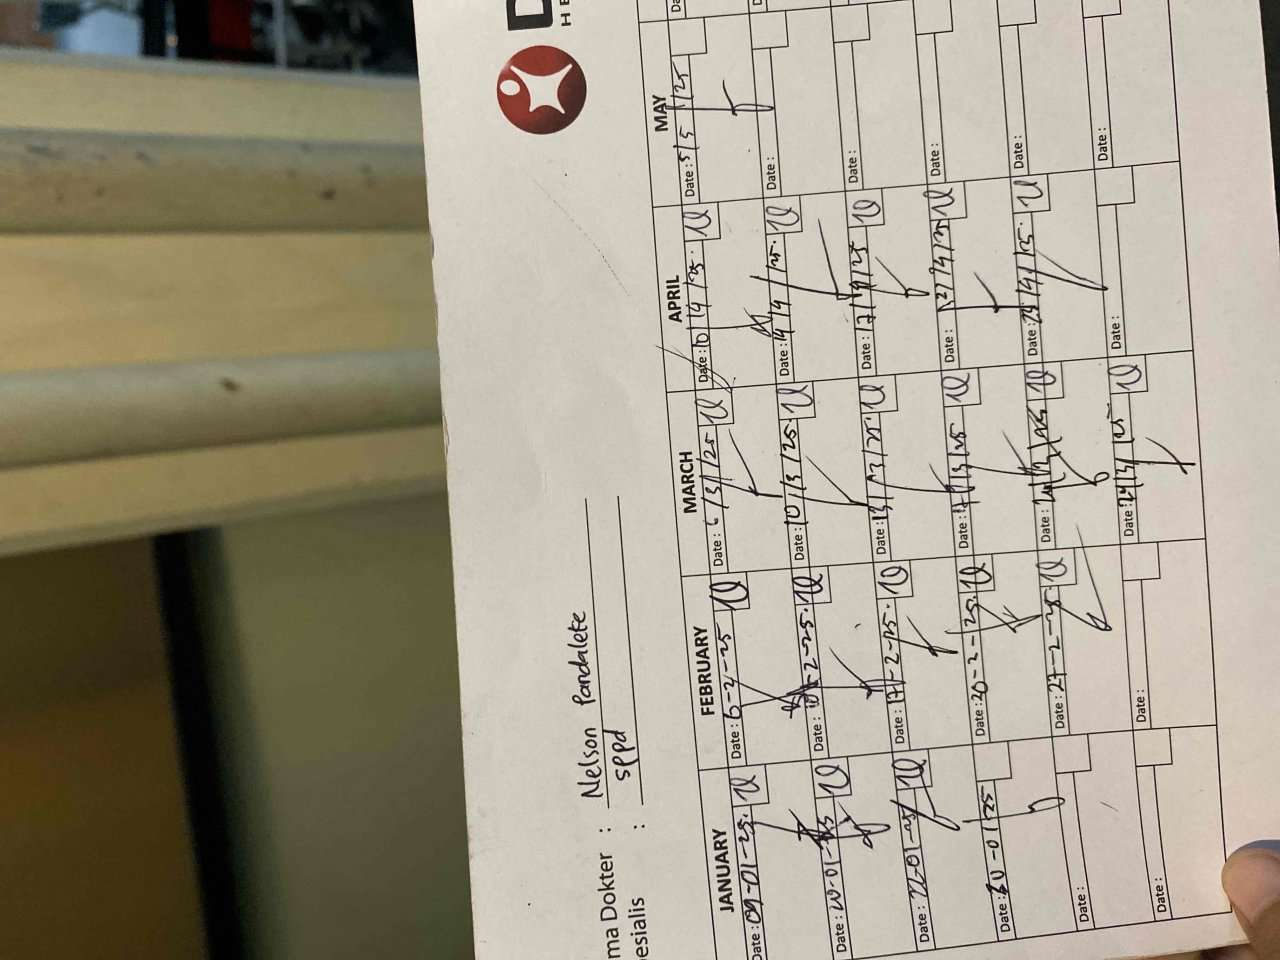 D
HE
ma Dokter : Nelson Pandalete
esialis : sppd
JANUARY FEBRUARY MARCH APRIL MAY
Date: 09-01-25. Date: 6-2-25 Date: 6/3/25 Date: 10/4/25. Date: 5/5/25
Date: 20-01-25 Date: 10-2-25. Date: 10/3/25 Date: 14/4/25. Date:
Date: 22-01-25 Date: 17-2-25. Date: 13/3/25. Date: 17/4/25 Date:
Date: 30-01-25 Date: 20-2-25. Date: 17/3/25 Date: 21/4/25 Date:
Date: Date: 27-2-25 Date: Date: 24/4/25. Date:
Date: Date: Date: Date: Date: